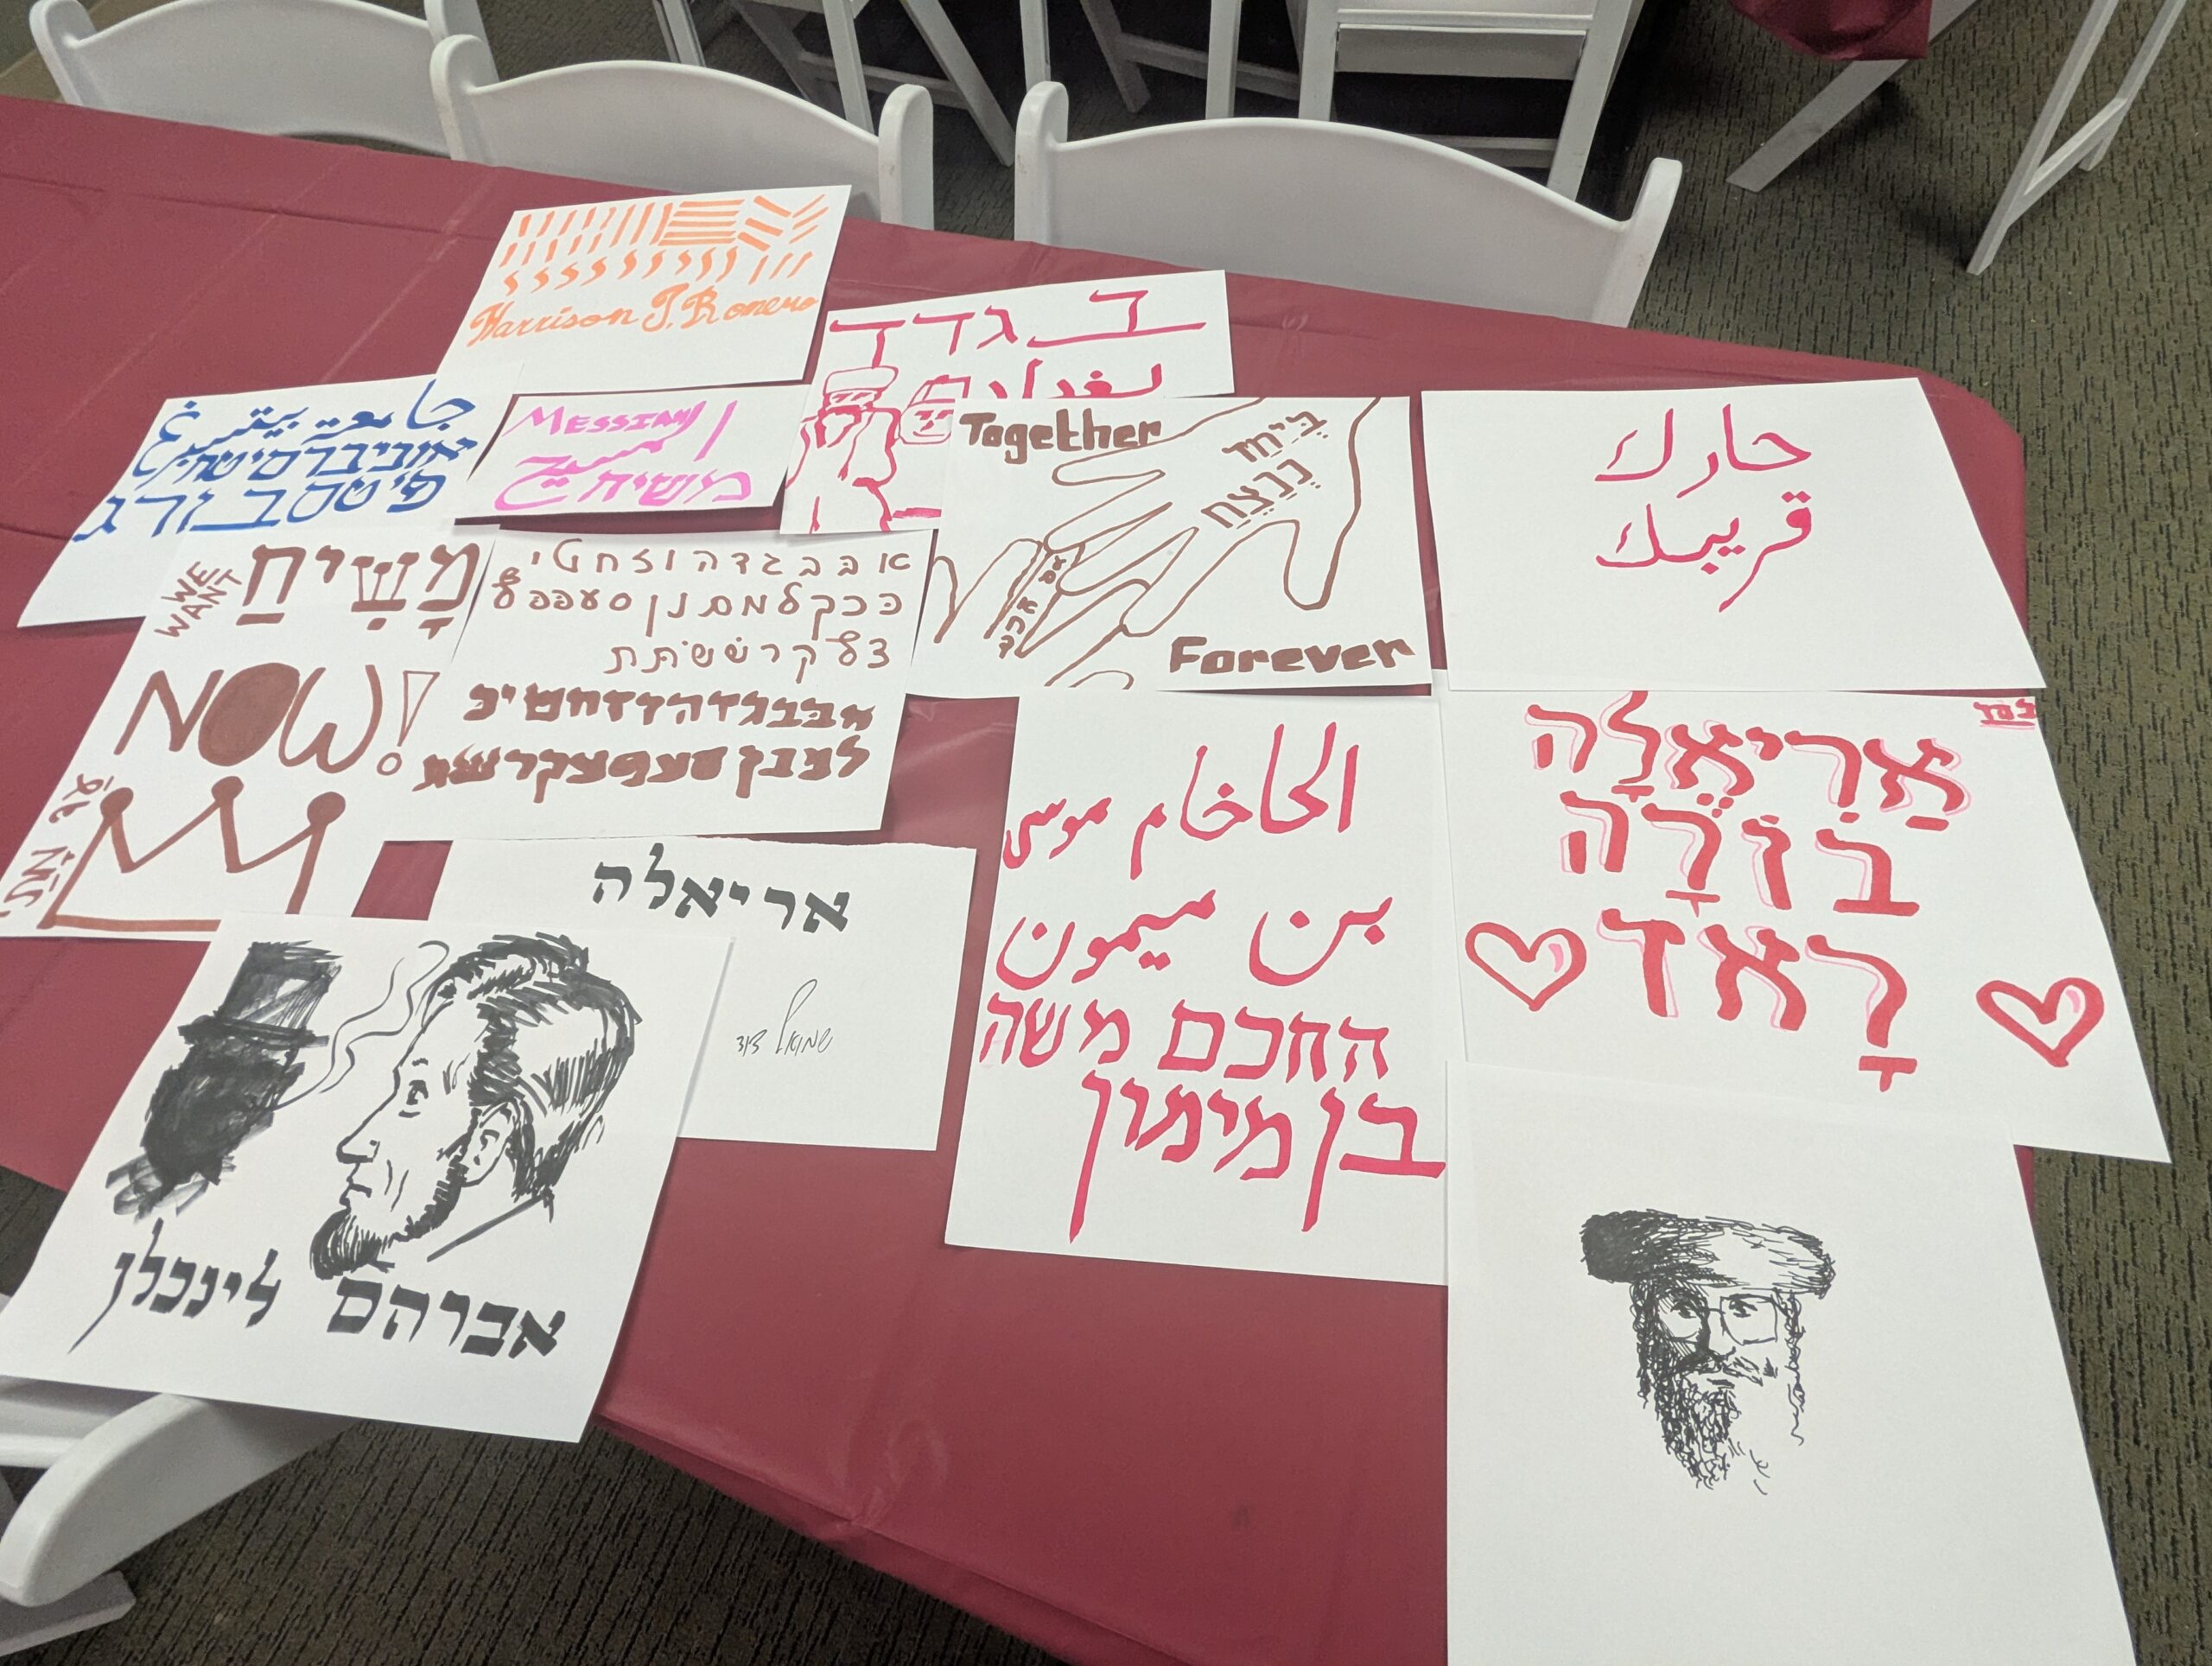 Harrison J. Romero
בגדד
بغداد
جامعة بيتسبرغ
אוניברסיטת
פיטסבורג
MESSIAH
مسيح
משיח
Together
בְּיַחַד
כַנֵצַח
Forever
جارك
قريبك
WE
WANT
מָשִׁיחַ
NOW!
א ב ב ג ד ה ו ז ח ט י
כ כ ך ל מ ם נ ן ס ע פ פ ף
צ ץ ק ר שׁ שׂ ת ת
אבבגדהוזחטיכ
למנן סעפצקרשת
אריאלה
שמואל
الحاخام موسى
بن ميمون
החכם משה
בן מימון
אַריאֵלָה
בוֹזֹרָה
רָאד
אברהם לינכלן